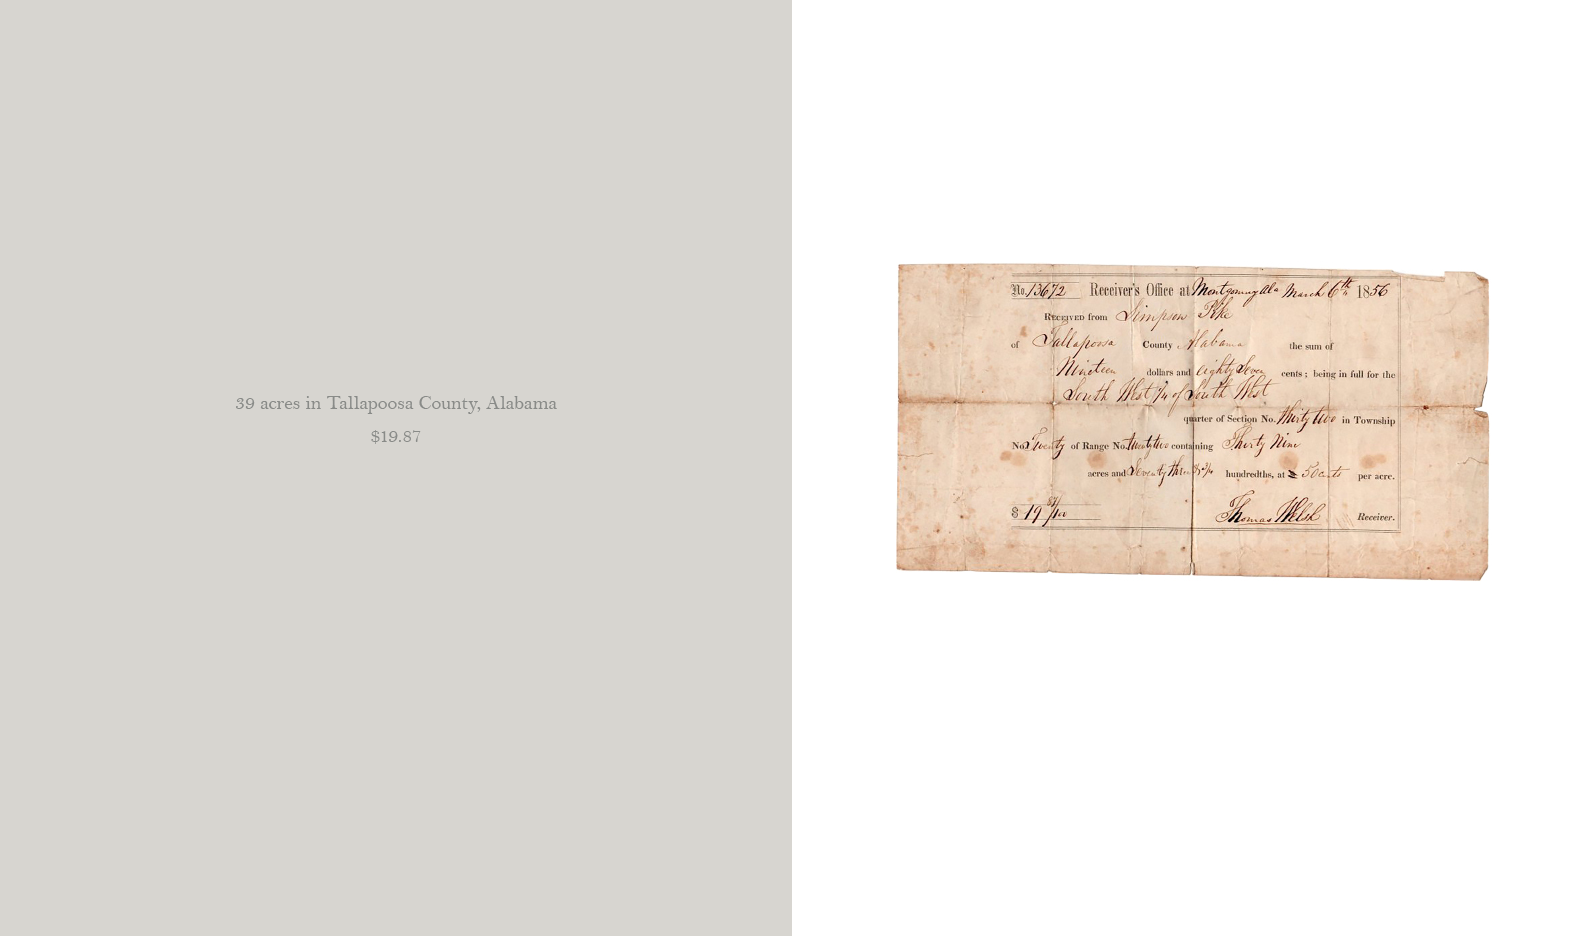 39 acres in Tallapoosa County, Alabama
$19.87
No. 13672 Receiver's Office at Montgomery Ala March 6th 1856
RECEIVED from Simpson
of Tallapoosa County, Alabama the sum of
Nineteen dollars and eighty Seven cents; being in full for the
South West 1/4 of South West
quarter of Section No. Thirty two in Township
No. Twenty of Range No. Twenty two containing Thirty Nine
acres and Seventy three hundredths, at 50 cents per acre.
$ 19 87/100 Thomas Welsh Receiver.